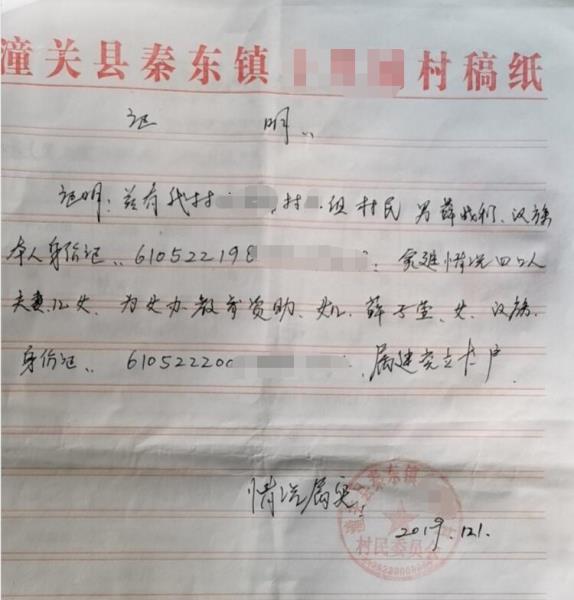 潼关县秦东镇 村稿纸
证 明
证明:兹有我村 村 组村民 男 薛 汉族
本人身份证:610522198 家庭情况四口人
夫妻儿女,为女办教育资助,女儿 薛子 女,汉族,
身份证:610522200 属建党立卡户
情况属实
潼关县秦东镇
村民委员会
2019.12.1.